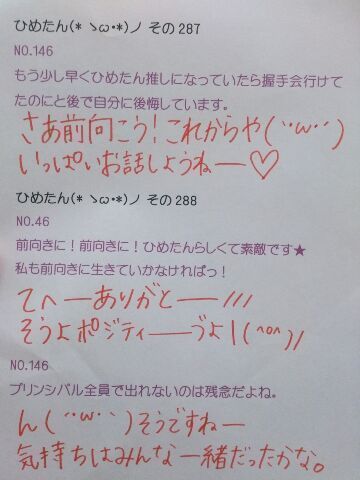 ひめたん(* ゝω・*)ノ その287
NO.146
もう少し早くひめたん推しになっていたら握手会行けて
たのにと後で自分に後悔しています。
さあ前向こう！これからや(¨ω¨)
いっぱいお話しようねー♡
ひめたん(* ゝω・*)ノ その288
NO.46
前向きに！前向きに！ひめたんらしくて素敵です★
私も前向きに生きていかなければっ！
てへーありがとー///
そうよポジティーーヴよ！(^o^)/
NO.146
プリンシパル全員で出れないのは残念だよね。
ん(¨ω¨)そうですねー
気持ちはみんな一緒だったかな。